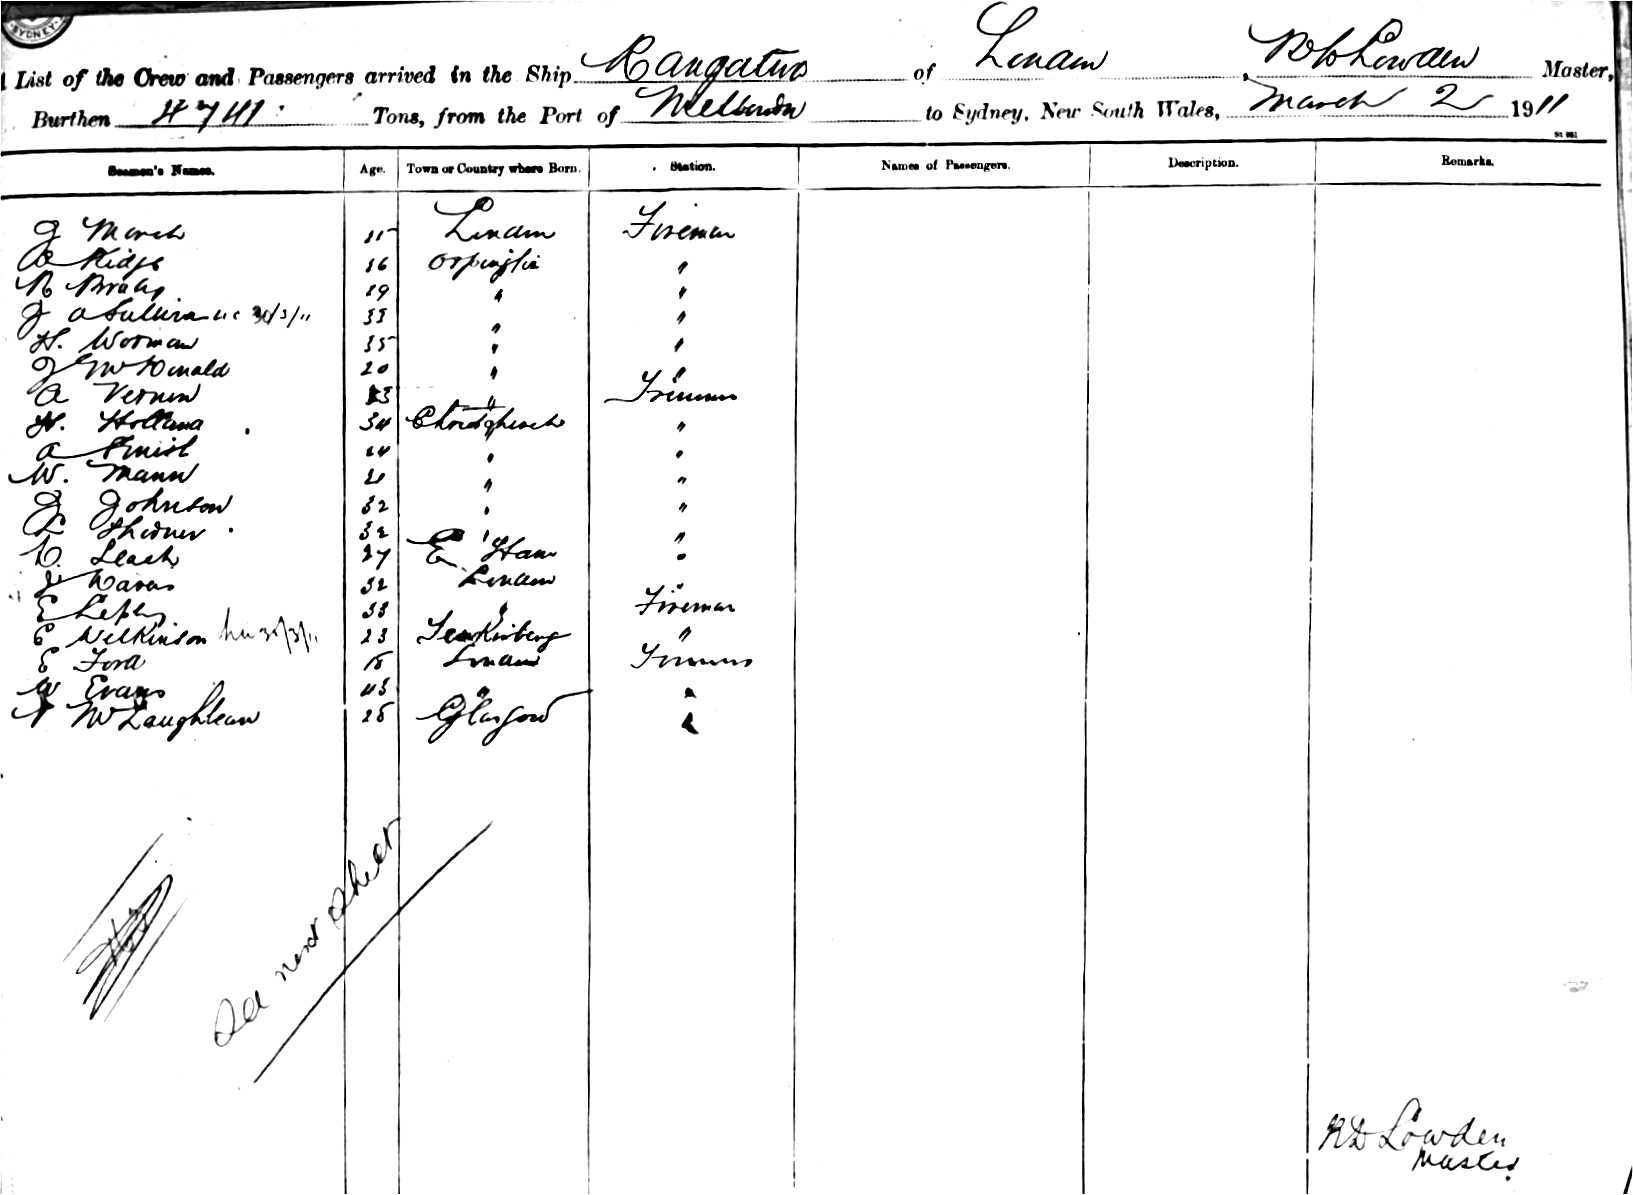 SYDNEY
List of the Crew and Passengers arrived in the Ship Rangatira of London, R D Lowden Master,
Burthen 4741 Tons, from the Port of Melbourne to Sydney, New South Wales, March 2 1911
Seamen's Names. Age. Town or Country where Born. Station. Names of Passengers. Description. Remarks.
J March London Fireman
Ridge 16 Orpington "
R 19 " "
J O'Sullivan 31/3/11 33 " "
H. Worman 35 " "
J McDonald 20 " "
A Vernon " Trimmer
H. Holland 34 Christchurch "
A " "
W. Mann " "
J Johnson 32 " "
L 32 " "
C. Leach 27 E Ham "
32 London "
E 33 " Fireman
E Wilkinson 23 "
E Ford 18 London Trimmers
W Evans 43 " "
McLaughlean 28 Glasgow "
See next sheet
R D Lowden
Master